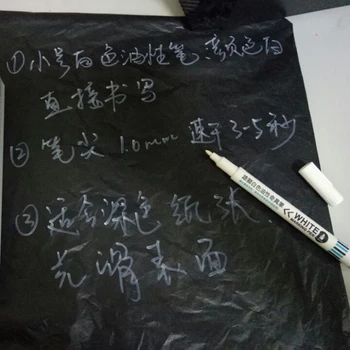 ①小号白色油性笔 颜色白
直接书写
②笔尖 1.0mm 速干3-5秒
③适合深色纸张、
光滑表面
WHITE